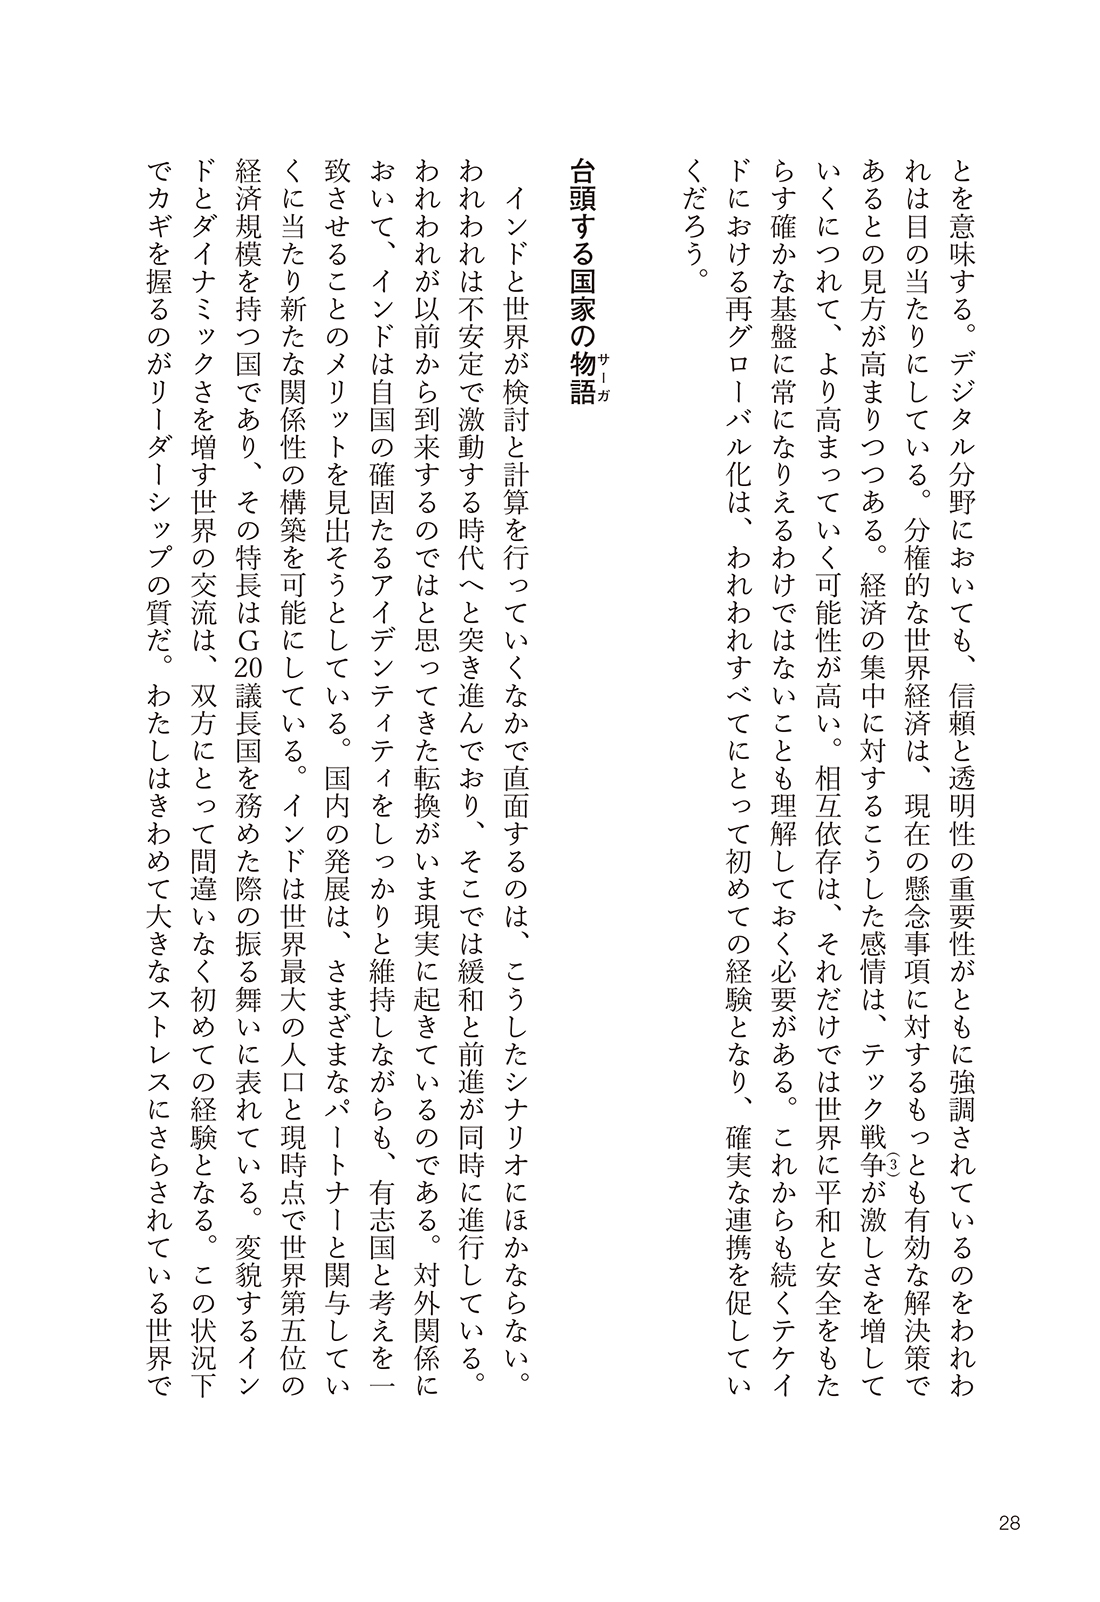 とを意味する。デジタル分野においても、信頼と透明性の重要性がともに強調されているのをわれわ
れは目の当たりにしている。分権的な世界経済は、現在の懸念事項に対するもっとも有効な解決策で
あるとの見方が高まりつつある。経済の集中に対するこうした感情は、テック戦争(3)が激しさを増して
いくにつれて、より高まっていく可能性が高い。相互依存は、それだけでは世界に平和と安全をもた
らす確かな基盤に常になりえるわけではないことも理解しておく必要がある。これからも続くテケイ
ドにおける再グローバル化は、われわれすべてにとって初めての経験となり、確実な連携を促してい
くだろう。
台頭する国家の物語サーガ
インドと世界が検討と計算を行っていくなかで直面するのは、こうしたシナリオにほかならない。
われわれは不安定で激動する時代へと突き進んでおり、そこでは緩和と前進が同時に進行している。
われわれが以前から到来するのではと思ってきた転換がいま現実に起きているのである。対外関係に
おいて、インドは自国の確固たるアイデンティティをしっかりと維持しながらも、有志国と考えを一
致させることのメリットを見出そうとしている。国内の発展は、さまざまなパートナーと関与してい
くに当たり新たな関係性の構築を可能にしている。インドは世界最大の人口と現時点で世界第五位の
経済規模を持つ国であり、その特長はG20議長国を務めた際の振る舞いに表れている。変貌するイン
ドとダイナミックさを増す世界の交流は、双方にとって間違いなく初めての経験となる。この状況下
でカギを握るのがリーダーシップの質だ。わたしはきわめて大きなストレスにさらされている世界で
28